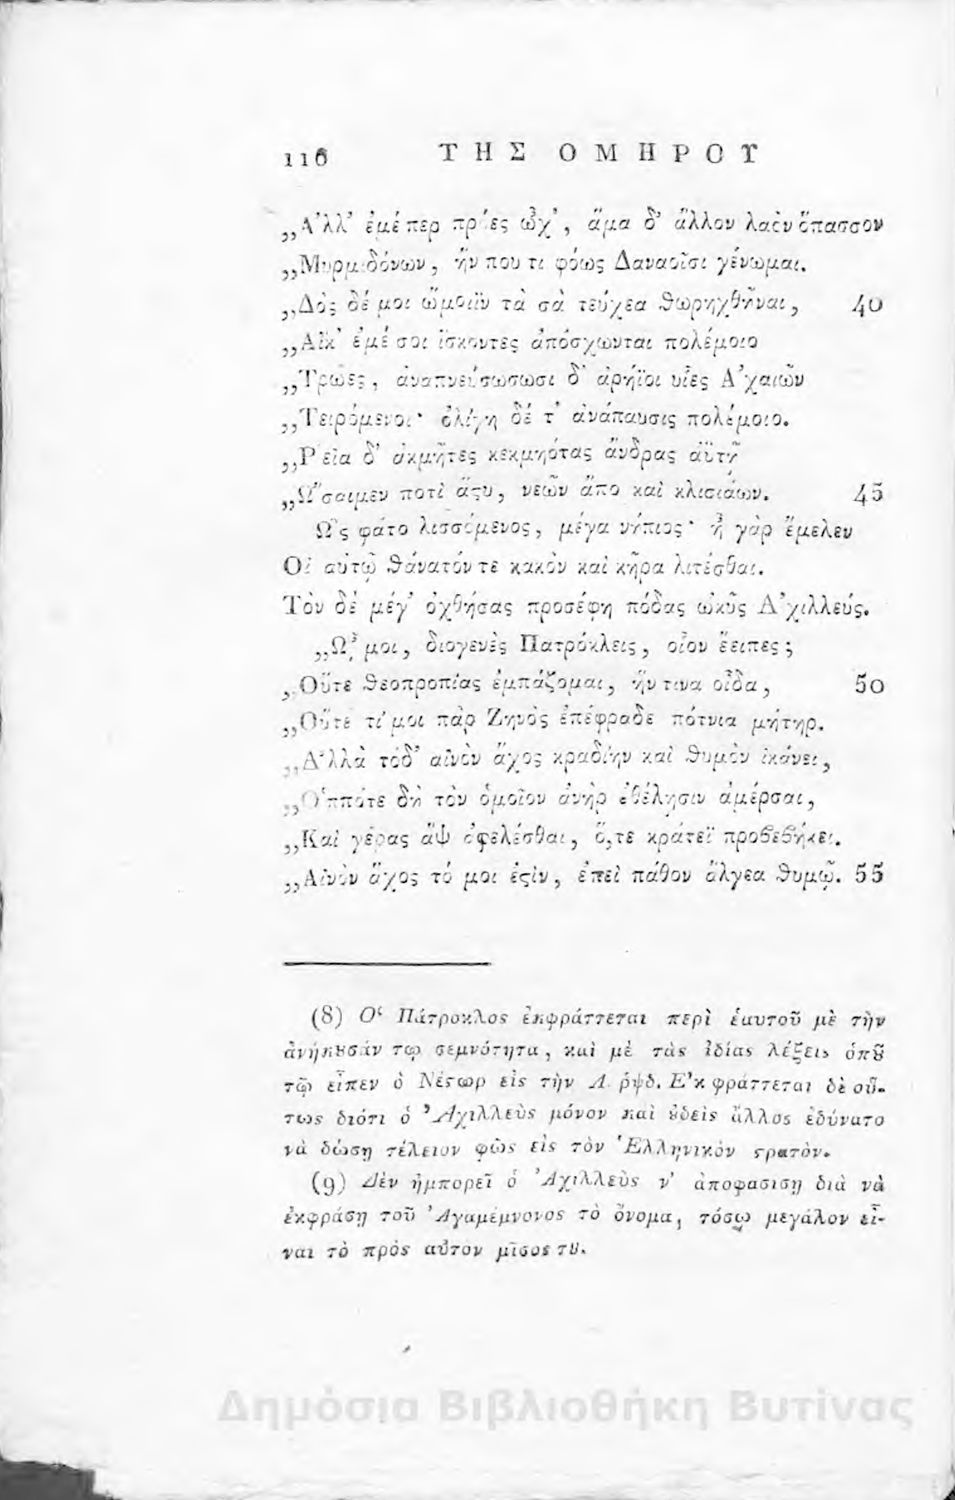 116 ΤΗΣ ΟΜΗΡΟΥ
„Α᾿λλ᾿ ἐμέ περ πρόες ὦχ᾿, ἅμα δ᾿ ἄλλον λαὸν ὄπασσον
„Μυρμιδόνων, ἤν που τι φόως Δαναοῖσι γένωμαι.
„Δὸς δέ μοι ὤμοιϊν τὰ σὰ τεύχεα θωρηχθῆναι, 40
„Αἴκ᾿ ἐμέ σοι ἴσκοντες ἀπόσχωνται πολέμοιο
„Τρῶες, ἀναπνεύσωσωσι δ᾿ ἀρήϊοι υἷες Α᾿χαιῶν
„Τειρόμενοι· ὀλίγη δέ τ᾿ ἀνάπαυσις πολέμοιο.
„Ρ῾εῖα δ᾿ ἀκμῆτες κεκμηότας ἄνδρας ἀϋτῇ
„Ω῎σαιμεν ποτὶ ἄϛυ, νεῶν ἄπο καὶ κλισιάων. 45
Ω῝ς φάτο λισσόμενος, μέγα νήπιος· ἦ γὰρ ἔμελεν
Οἷ αὐτῷ θάνατόν τε κακὸν καὶ κῆρα λιτέσθαι.
Τὸν δὲ μέγ᾿ ὀχθήσας προσέφη πόδας ὠκὺς Α᾿χιλλεύς.
„Ω῎ μοι, διογενὲς Πατρόκλεις, οἷον ἔειπες;
„Οὔτε θεοπροπίας ἐμπάζομαι, ἥν τινα οἶδα, 50
„Οὔτε τί μοι πὰρ Ζηνὸς ἐπέφραδε πότνια μήτηρ.
„Α᾿λλὰ τόδ᾿ αἰνὸν ἄχος κραδίην καὶ θυμὸν ἱκάνει,
„Ο῾ππότε δὴ τὸν ὁμοῖον ἀνὴρ ἐθέλησιν ἀμέρσαι,
„Καὶ γέρας ἂψ ἀφελέσθαι, ὅ,τε κράτεϊ προβεβήκει.
„Αἰνὸν ἄχος τό μοι ἐϛὶν, ἐπεὶ πάθον ἄλγεα θυμῷ. 55
(8) Ο῾ Πάτροκλος ἐκφράττεται περὶ ἑαυτοῦ μὲ τὴν
ἀνήκȣσάν τῳ σεμνότητα, καὶ μὲ τὰς ἰδίας λέξεις ὁπȣ͂
τῷ εἶπεν ὁ Νέϛωρ εἰς τὴν Λ ῥψδ. Ε᾿κφράττεται δὲ οὕ-
τως διότι ὁ ᾿Αχιλλεὺς μόνον καὶ ȣ̓δεὶς ἄλλος ἐδύνατο
νὰ δώσῃ τέλειον φῶς εἰς τὸν ῾Ελληνικὸν ϛρατὸν.
(9) Δὲν ἠμπορεῖ ὁ ᾿Αχιλλεὺς ν᾿ ἀποφασισῃ διὰ νὰ
ἐκφράσῃ τοῦ ᾿Αγαμέμνονος τὸ ὄνομα, τόσῳ μεγάλον εἶ-
ναι τὸ πρὸς αὐτον μῖσος τȣ.
Δημόσια Βιβλιοθήκη Βυτίνας